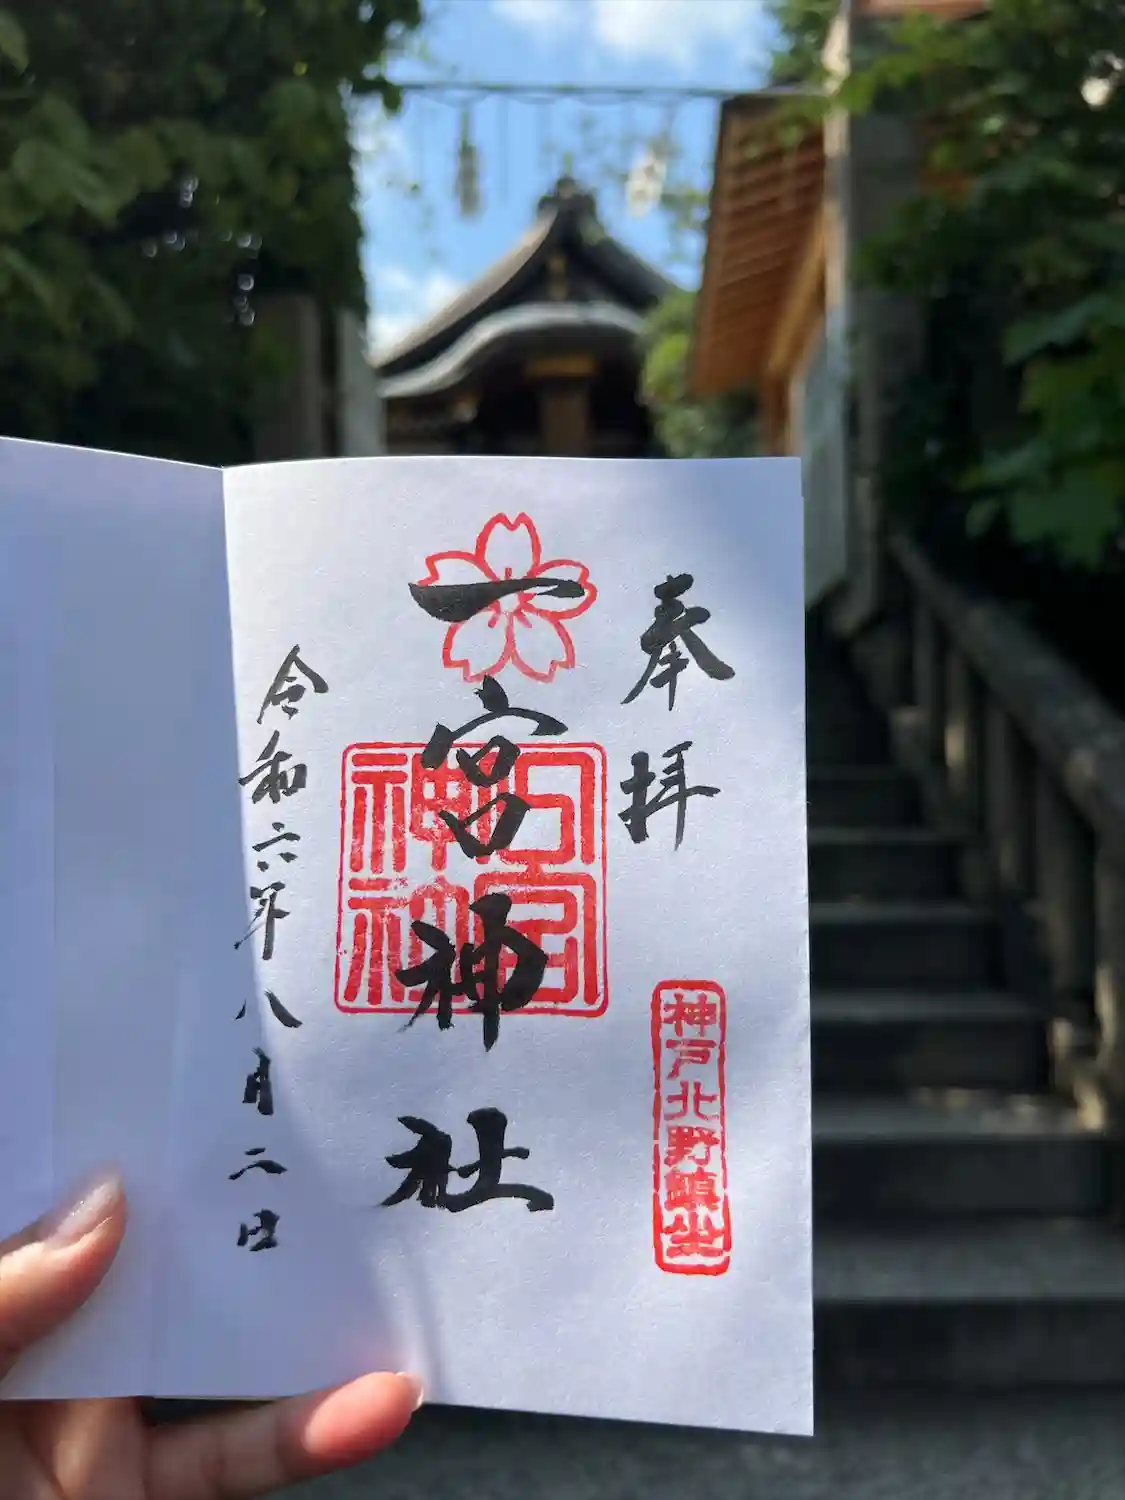 奉拝
神戸北野鎮坐
一宮神社
令和六年八月二日